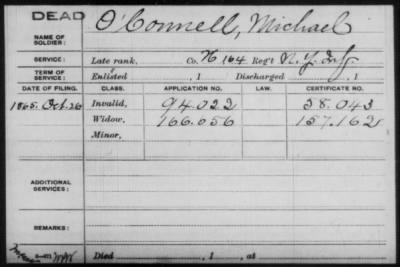 DEAD
NAME OF SOLDIER: O'Connell, Michael
SERVICE: Late rank, Co. H 164 Reg't N.Y. Inf.
TERM OF SERVICE: Enlisted , 1 Discharged , 1
DATE OF FILING. CLASS. APPLICATION NO. LAW. CERTIFICATE NO.
1865. Oct. 26 Invalid, 94.022 38.043
Widow, 166.056 157.162
Minor,
ADDITIONAL SERVICES:
REMARKS:
Died , 1 , at